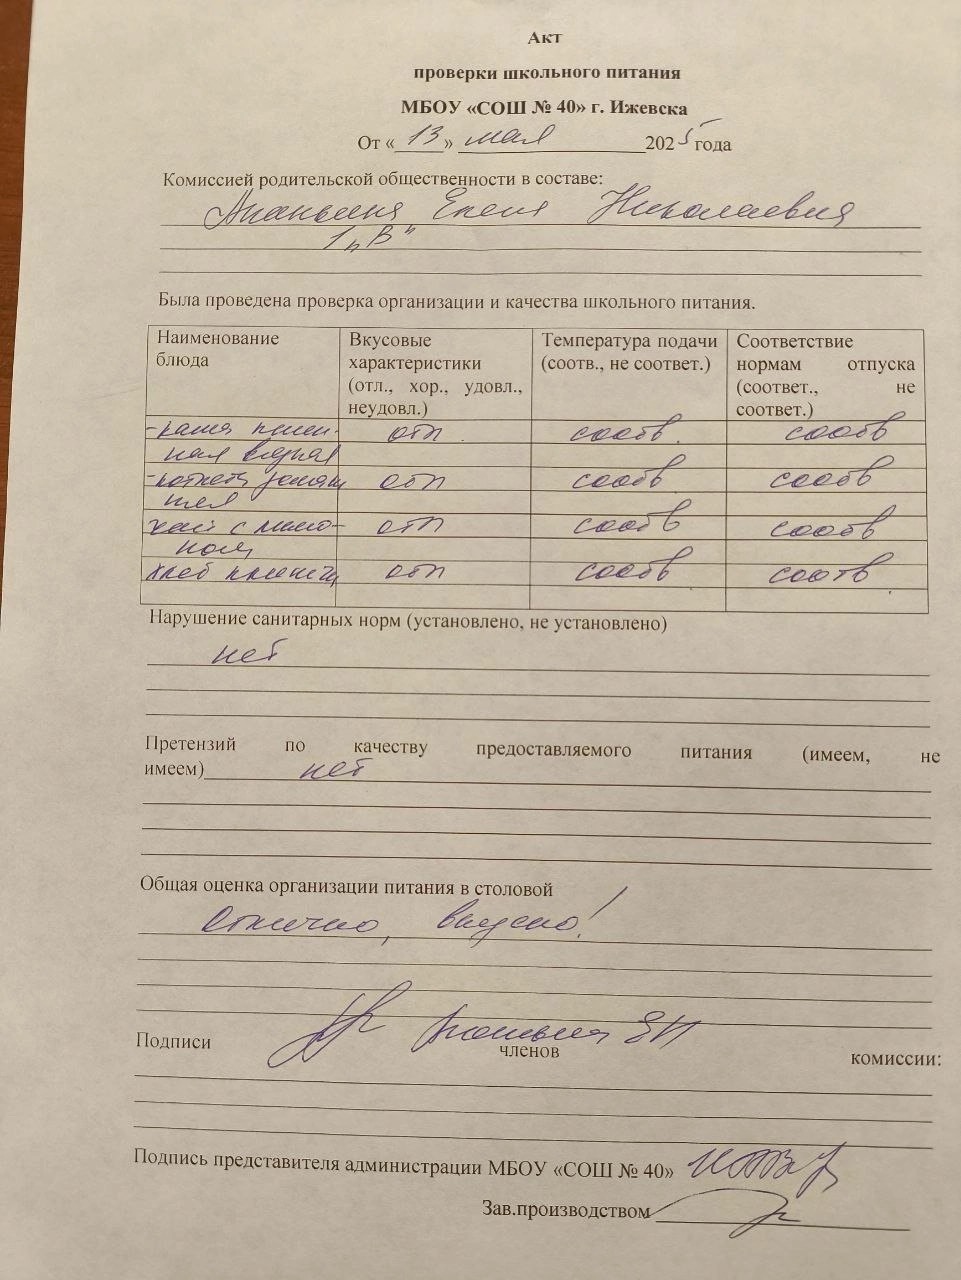 Акт
проверки школьного питания
МБОУ «СОШ № 40» г. Ижевска
От « 13 » мая 2025 года
Комиссией родительской общественности в составе:
Ананьина Елена Николаевна
1 „В"
Была проведена проверка организации и качества школьного питания.
Наименование блюда
Вкусовые характеристики (отл., хор., удовл., неудовл.)
Температура подачи (соотв., не соответ.)
Соответствие нормам отпуска (соответ., не соответ.)
- каша пшен- отл. соотв. соотв
ная вязкая
- котлета домаш отл соотв соотв
няя
чай с лимо- отл соотв соотв
ном
хлеб пшенич отл соотв соотв
Нарушение санитарных норм (установлено, не установлено)
нет
Претензий по качеству предоставляемого питания (имеем, не
имеем) нет
Общая оценка организации питания в столовой
Отлично, вкусно!
Ананьина ЕН
Подписи членов комиссии:
Подпись представителя администрации МБОУ «СОШ № 40»
Зав.производством